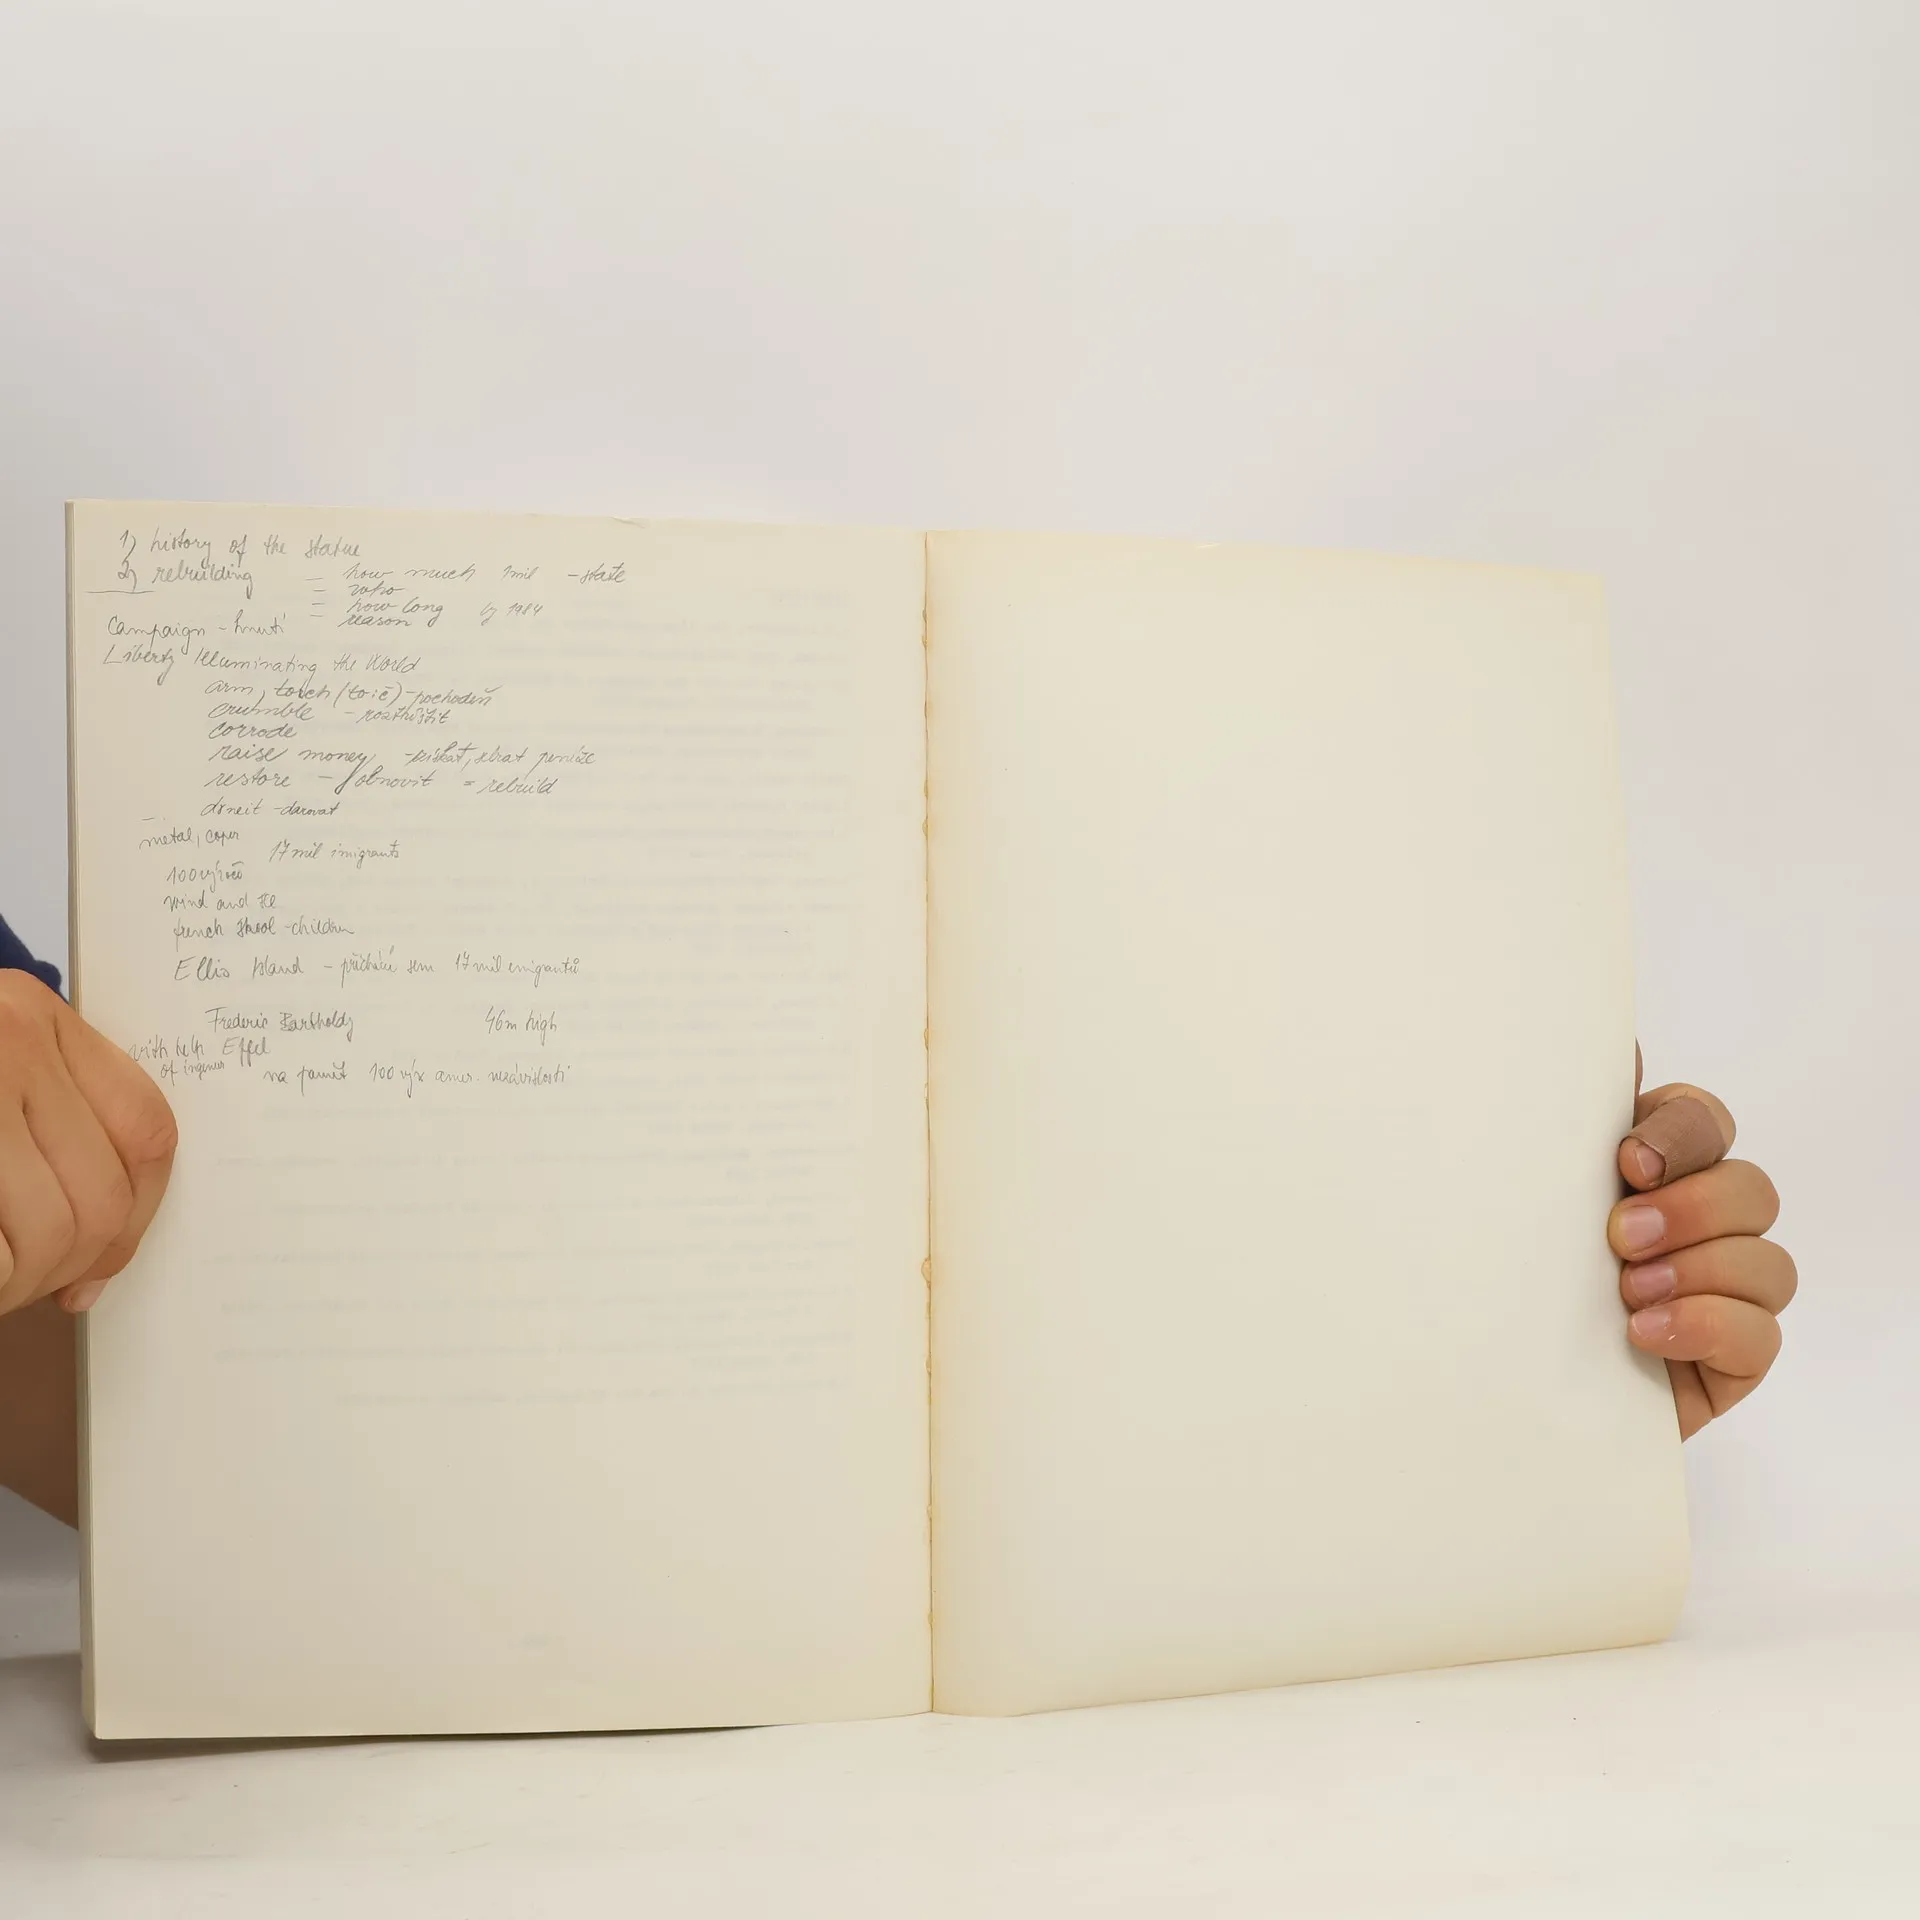 1) history of the statue
2) rebuilding
= how much 1mil - state
= who
= how long by 1984
= reason
Campaign - hnutí
Liberty Illuminating the World
arm, torch (to:č) - pochodeň
crumble - roztříštit
corrode
raise money - získat, sebrat peníze
restore - obnovit = rebuild
darovat
metal, coper
17 mil imigrants
100 výroč
wind and
french skool - children
Ellis Island - přichází sem 17 mil emigrantů
Frederic Bartholdy 46m high
with help Effel
of ingenier
na paměť 100 výr amer. nezávislosti